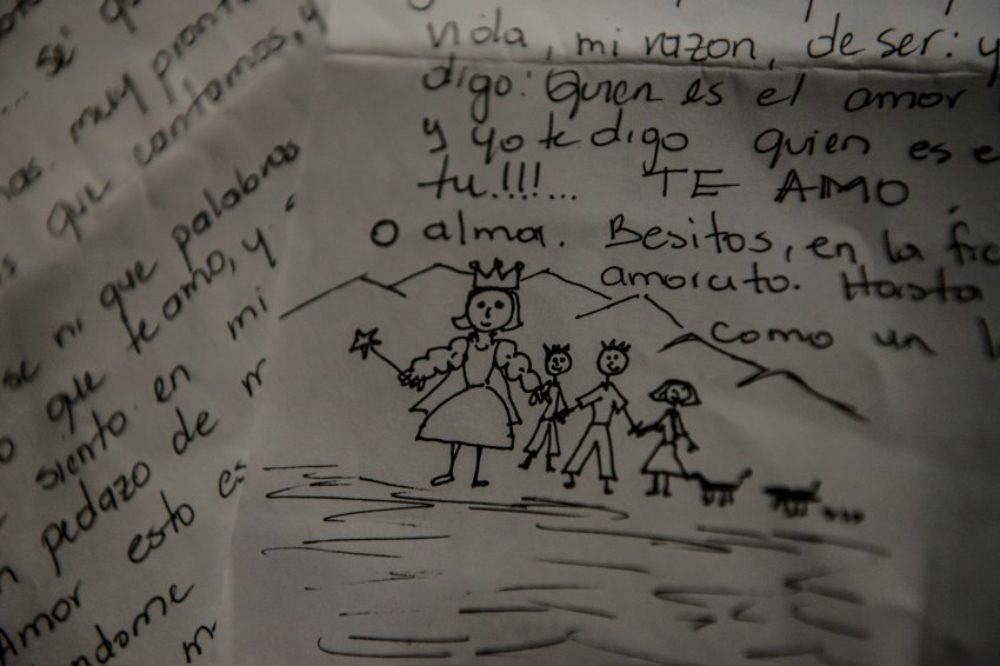 sé
muy pronto
que contamos, y
se ni que palabras
que te amo, y
siento en mi
pedazo de
esto es
Amor
mi razon, de ser: y
digo: Quien es el amor
y yo te digo quien es e
tu!!!... TE AMO
O alma. Besitos, en la
amorcito. Hasta
como un